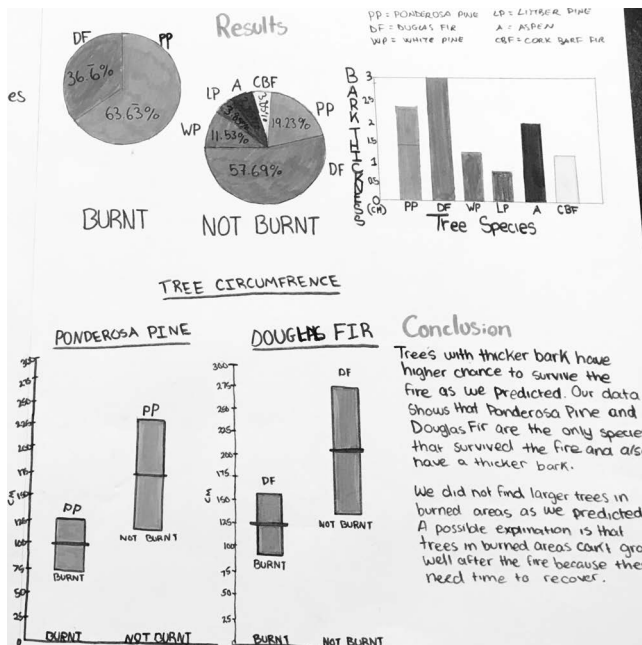 es
Results
PP = PONDEROSA PINE LP = LIMBER PINE
DF = DUGLAS FIR A = ASPEN
WP = WHITE PINE CBF = CORK BARK FIR
DF
PP
36.6%
63.63%
BURNT
LP
A
CBF
WP
PP
DF
11.53%
19.23%
57.69%
NOT BURNT
BARK THICKNESS
(CM)
3
2.5
2
1.5
1
0.5
0
PP DF WP LP A CBF
Tree Species
TREE CIRCUMFRENCE
PONDEROSA PINE
300
275
250
225
200
175
150
125
100
75
50
25
0
CM
PP
BURNT
PP
NOT BURNT
BURNT NOT BURNT
DOUGLAS FIR
300
275
250
225
200
175
150
125
100
75
50
25
0
CM
DF
BURNT
DF
NOT BURNT
BURNT NOT BURNT
Conclusion
Trees with thicker bark have
higher chance to survive the
fire as we predicted. Our data
shows that Ponderosa Pine and
Douglas Fir are the only species
that survived the fire and also
have a thicker bark.
We did not find larger trees in
burned areas as we predicted.
A possible explination is that
trees in burned areas can't grow
well after the fire because they
need time to recover.